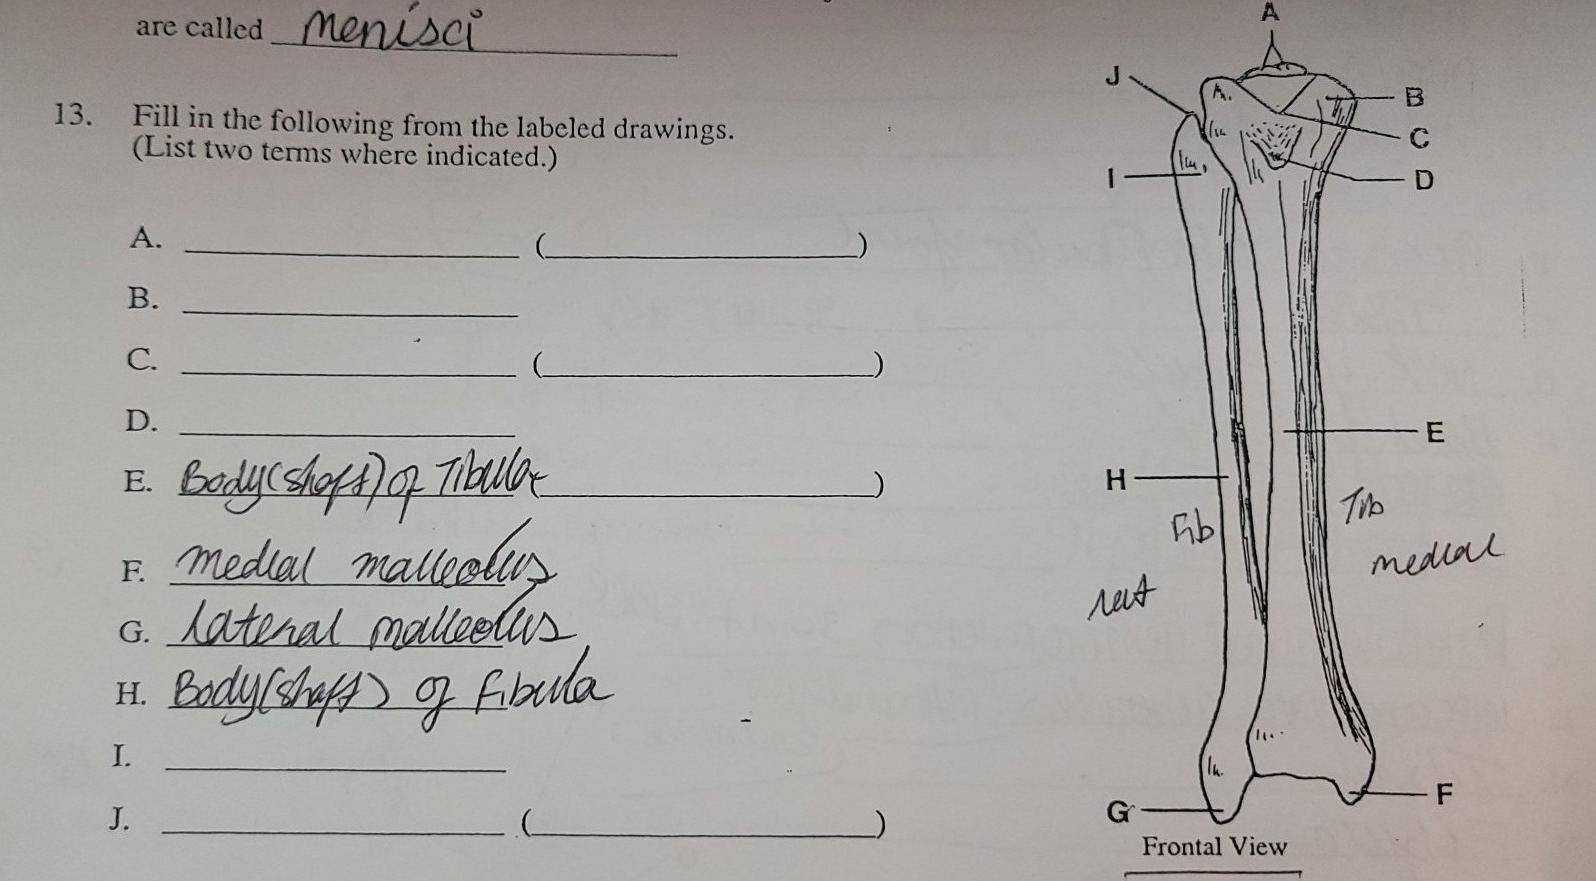 are called menisci
13. Fill in the following from the labeled drawings.
(List two terms where indicated.)
A. ( )
B.
C. ( )
D.
E. Body(shaft) of Tibula ( )
F. medial malleolus
G. lateral malleolus
H. Body(shaft) of fibula
I.
J. ( )
A
J
B
C
I
D
E
H
Fib
Tib
medial
G
F
Frontal View